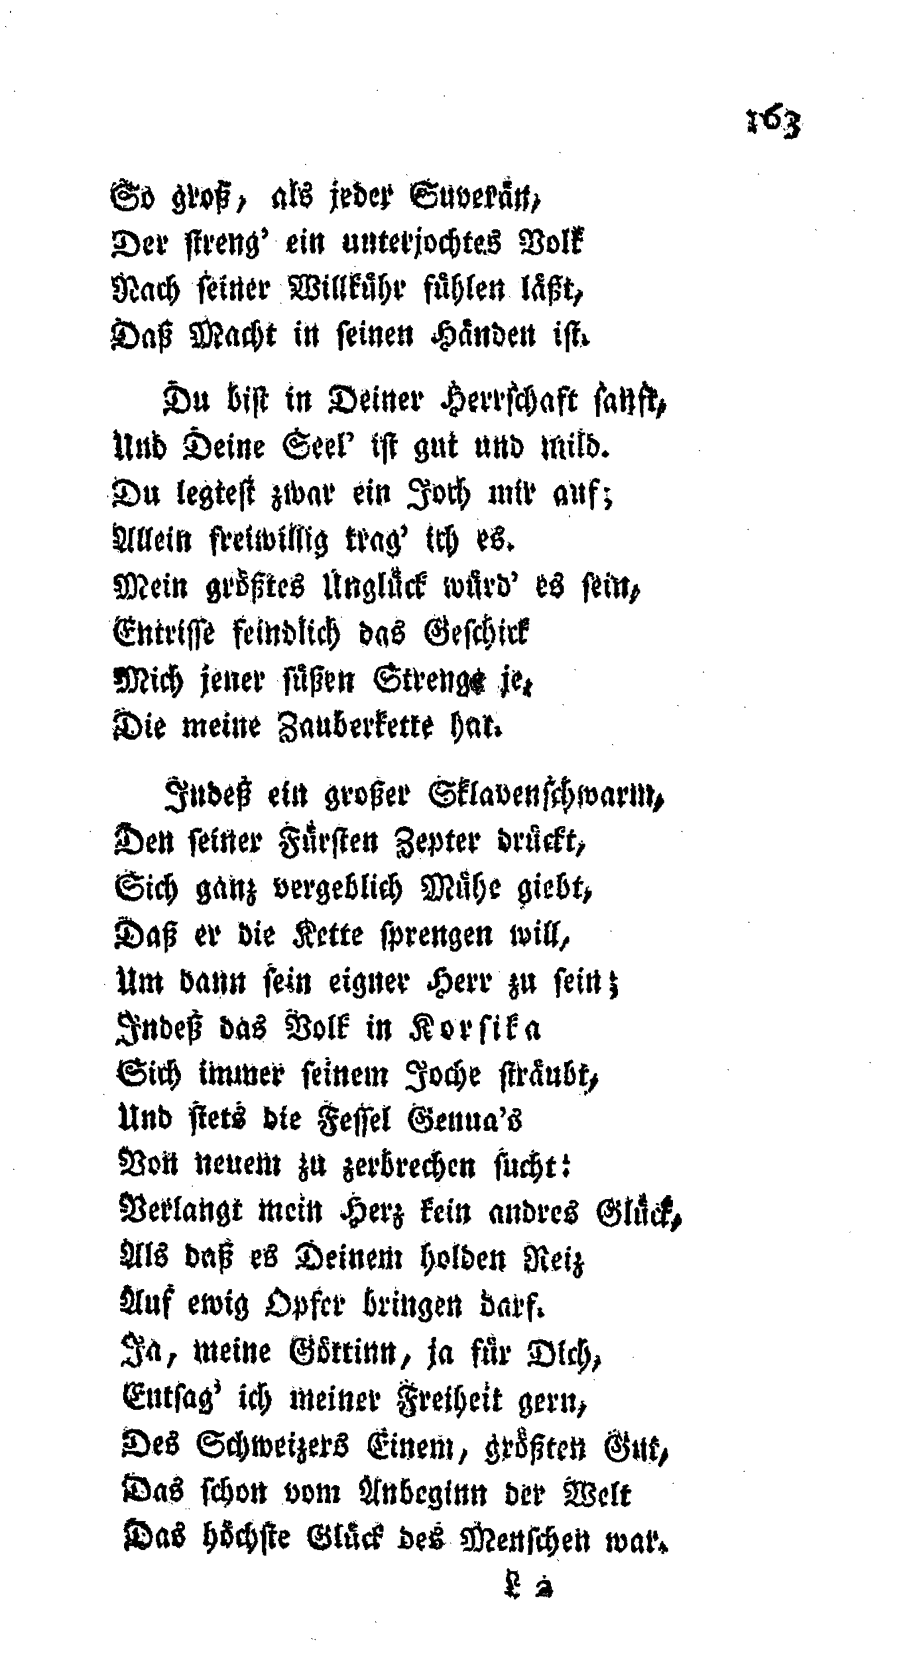 163
So groß, als jeder Suverän,
Der streng' ein unterjochtes Volk
Nach seiner Willkühr fühlen läßt,
Daß Macht in seinen Händen ist.
Du bist in Deiner Herrschaft sanft,
Und Deine Seel' ist gut und mild.
Du legtest zwar ein Joch mir auf;
Allein freiwillig trag' ich es.
Mein größtes Unglück würd' es sein,
Entrisse feindlich das Geschick
Mich jener süßen Strenge je,
Die meine Zauberkette hat.
Indeß ein großer Sklavenschwarm,
Den seiner Fürsten Zepter drückt,
Sich ganz vergeblich Mühe giebt,
Daß er die Kette sprengen will,
Um dann sein eigner Herr zu sein;
Indeß das Volk in Korsika
Sich immer seinem Joche sträubt,
Und stets die Fessel Genua's
Von neuem zu zerbrechen sucht:
Verlangt mein Herz kein andres Glück,
Als daß es Deinem holden Reiz
Auf ewig Opfer bringen darf.
Ja, meine Göttinn, ja für Dich,
Entsag' ich meiner Freiheit gern,
Des Schweizers Einem, größten Gut,
Das schon vom Anbeginn der Welt
Das höchste Glück des Menschen war.
L 2